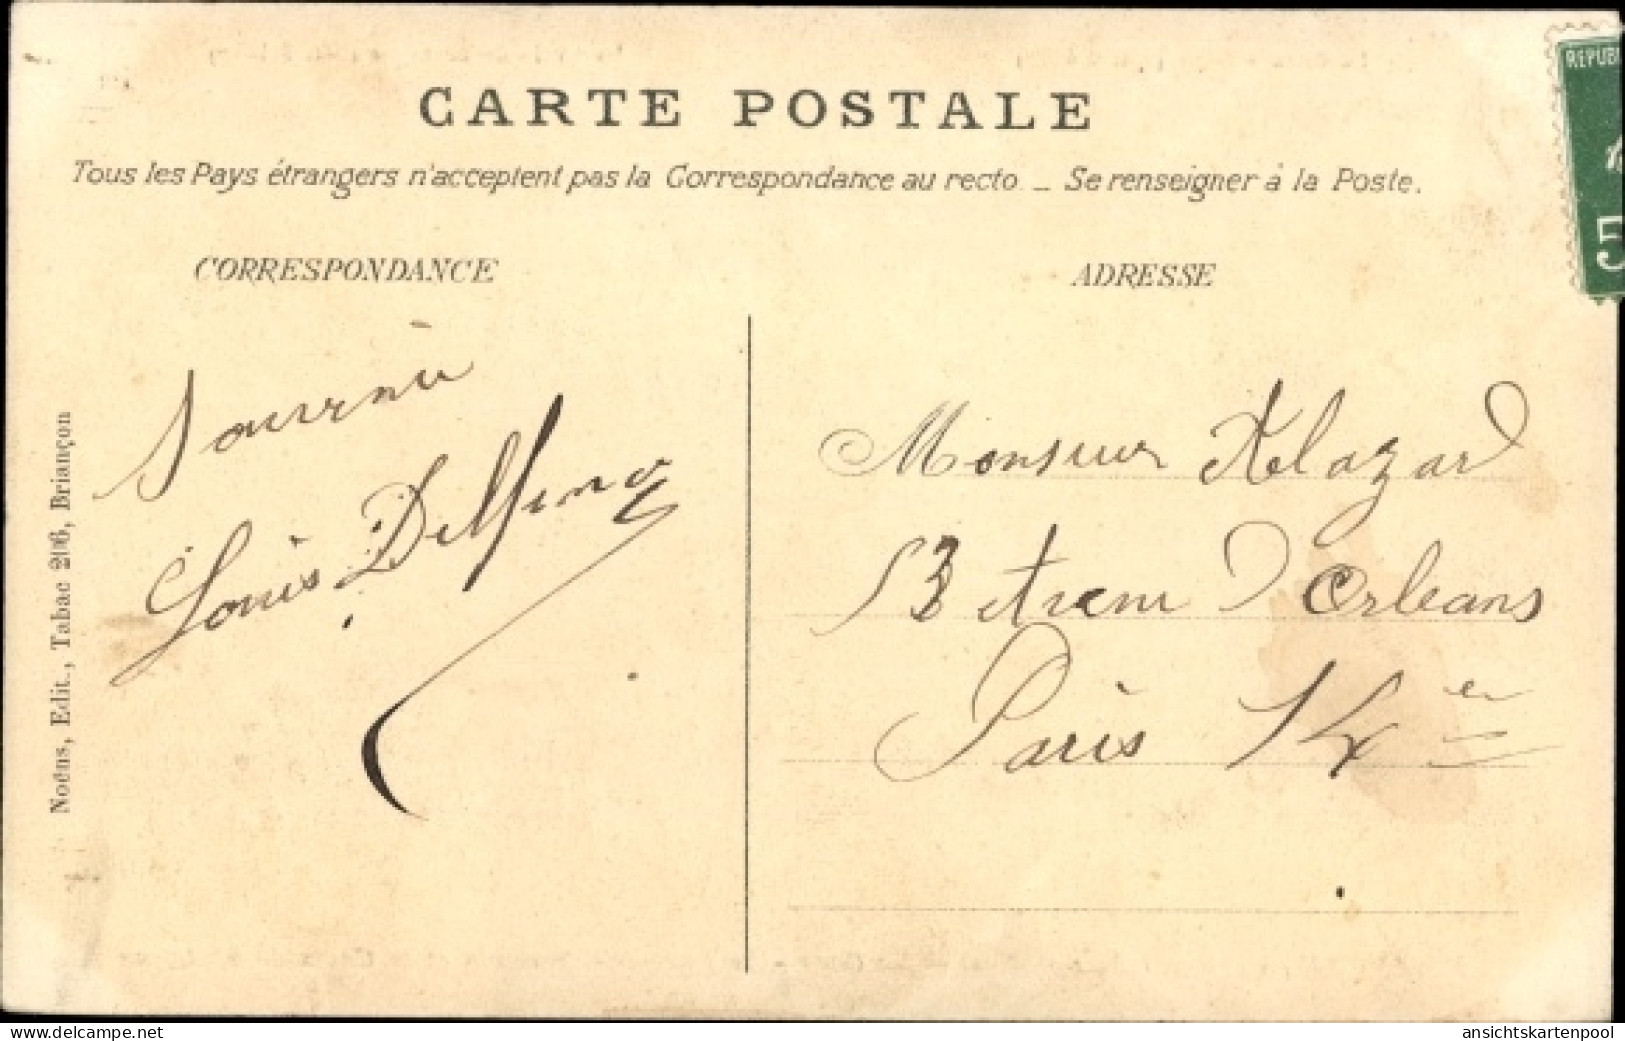 REPUB
5
CARTE POSTALE
Tous les Pays étrangers n'acceptent pas la Correspondance au recto. _ Se renseigner à la Poste.
CORRESPONDANCE
ADRESSE
Louis
Monsieur
13 Orleans
Paris 14 e
Noëns, Edit., Tabac 206, Briançon
www.delcampe.net
ansichtskartenpool